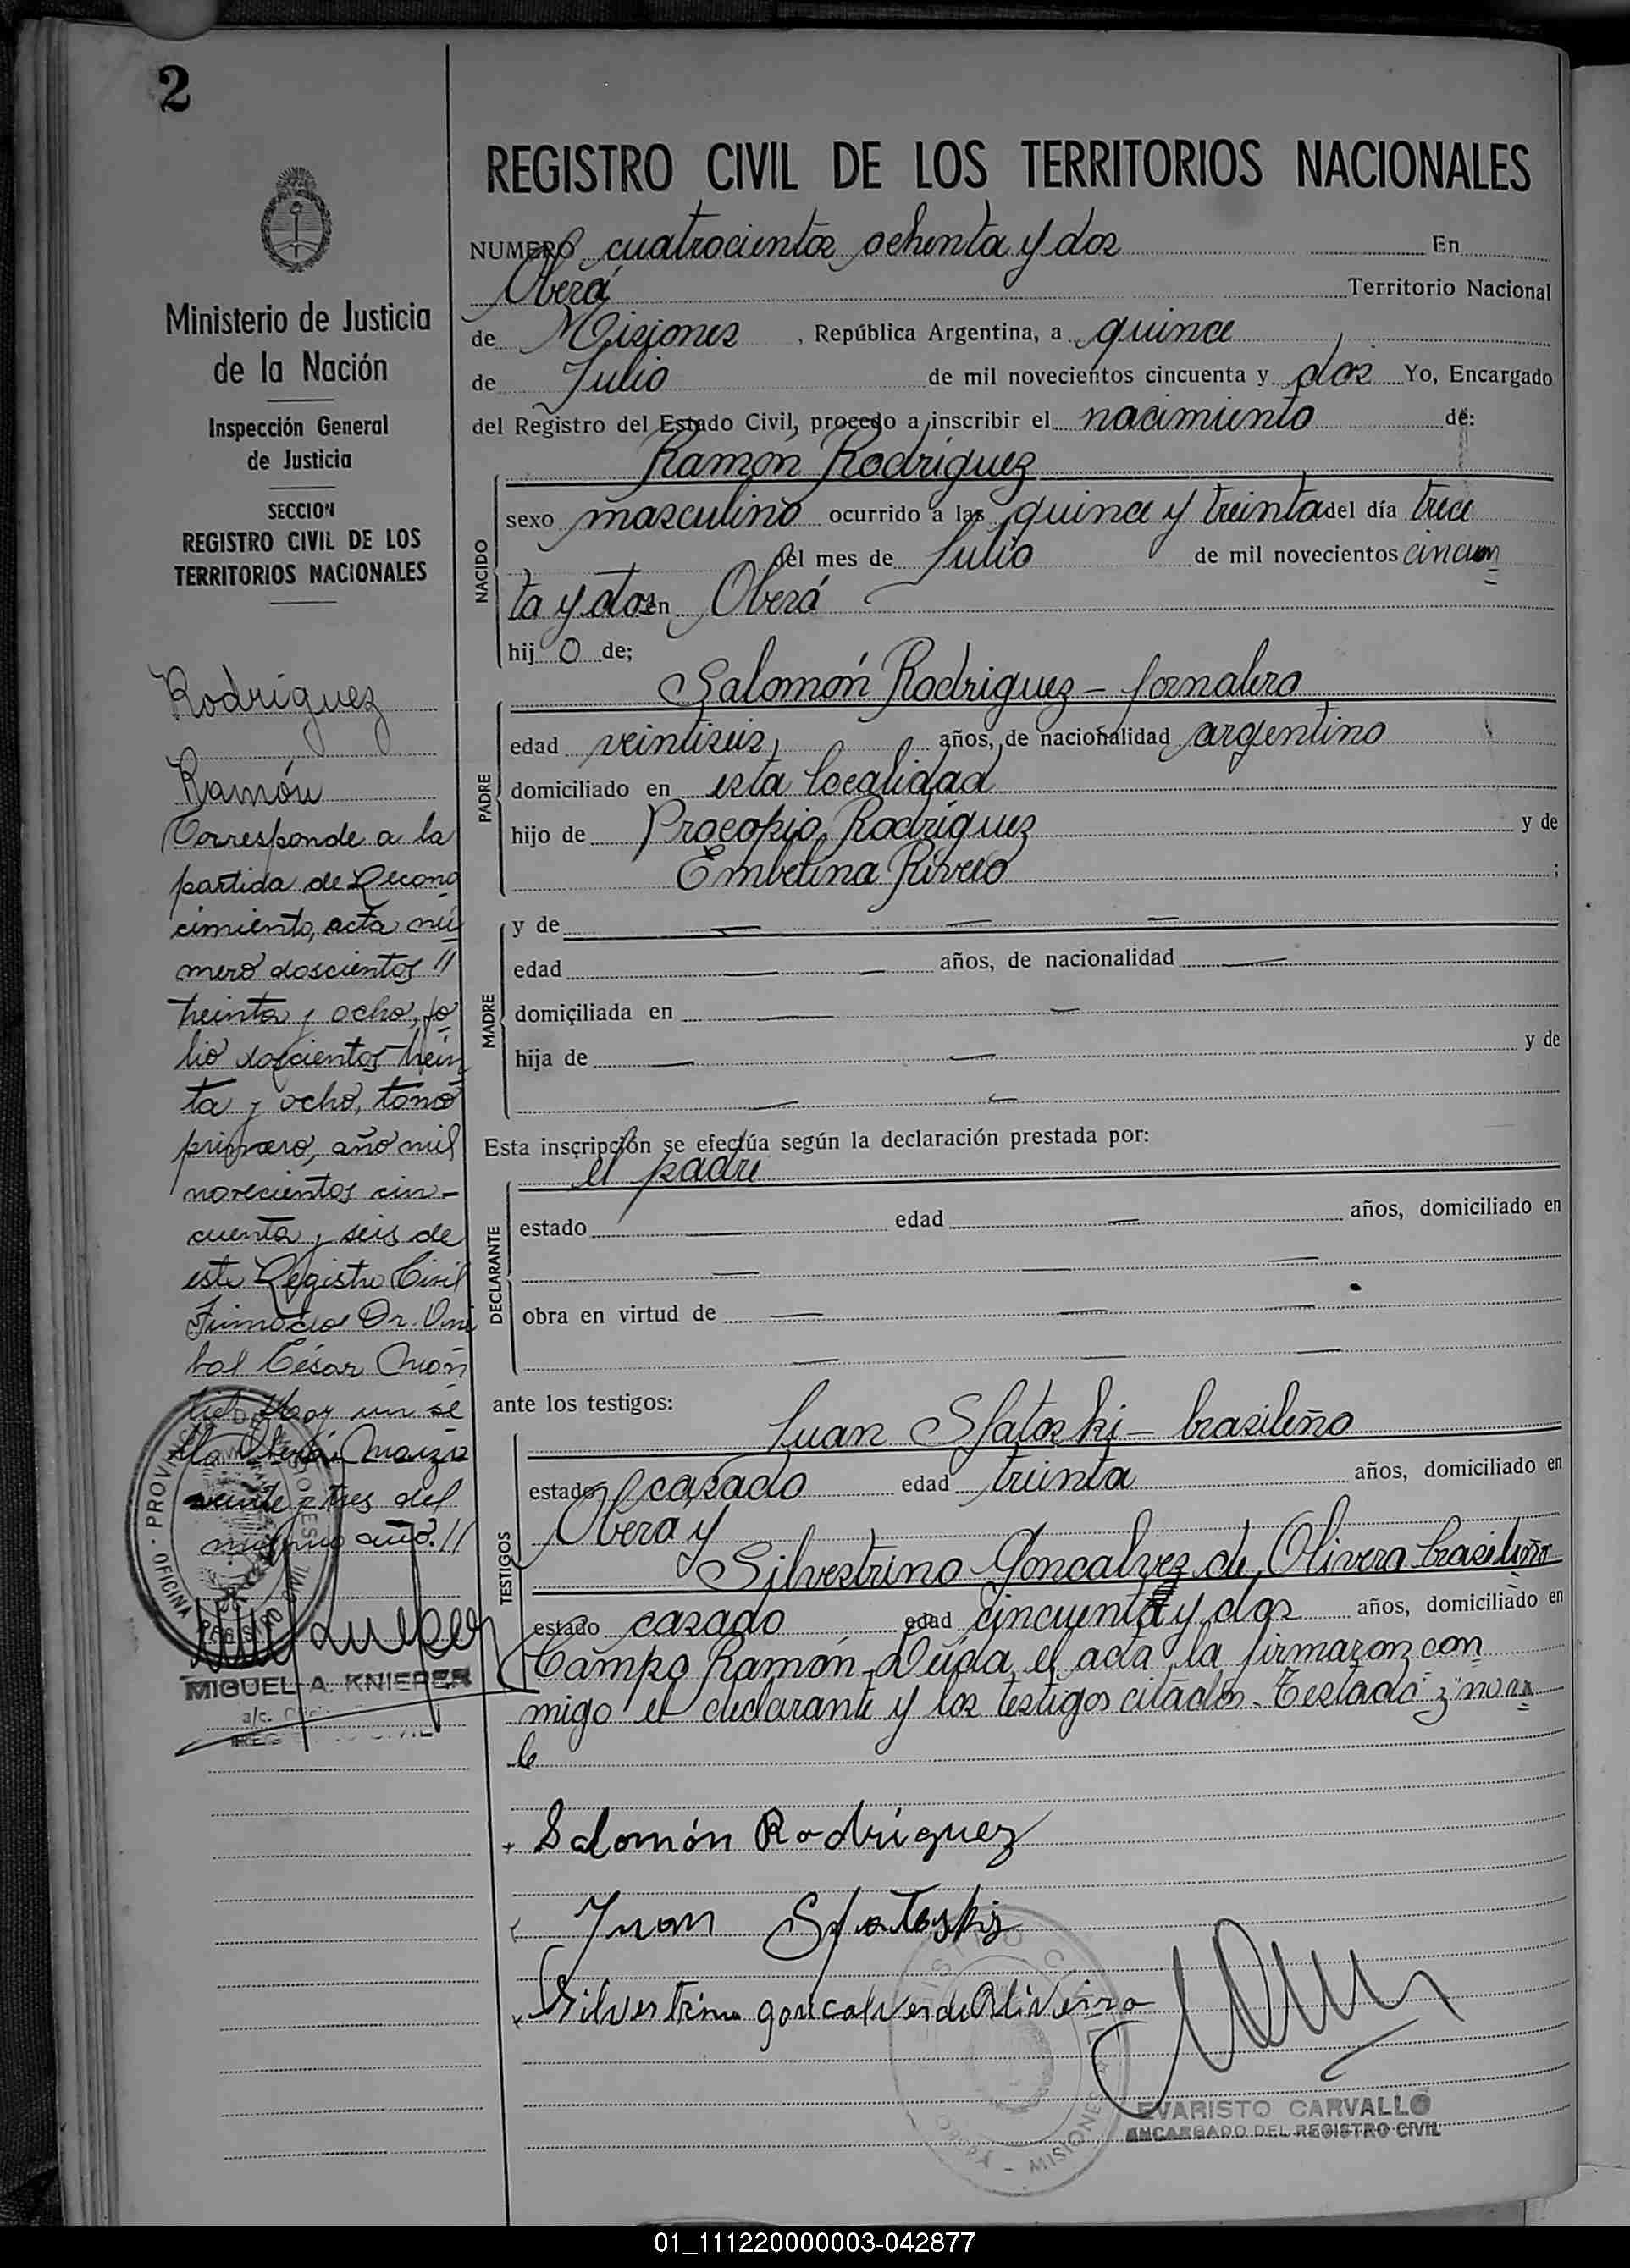 2
REGISTRO CIVIL DE LOS TERRITORIOS NACIONALES
NUMERO cuatrocientos ochenta y dos En
Oberá Territorio Nacional
de Misiones, República Argentina, a quince
de Julio de mil novecientos cincuenta y dos Yo, Encargado
del Registro del Estado Civil, procedo a inscribir el nacimiento de:
Ramón Rodriguez
NACIDO
sexo masculino ocurrido a las quince y treinta del día trece
del mes de Julio de mil novecientos cincuen
ta y dos en Oberá
hij o de;
Salomón Rodriguez - Jornalero
PADRE
edad veintiseis, años, de nacionalidad argentino
domiciliado en esta localidad
hijo de Procopio Rodriguez y de
Embelina Rivero ;
MADRE
y de — — —
edad — — años, de nacionalidad —
domiciliada en — —
hija de — — y de
— —
Esta inscripción se efectúa según la declaración prestada por:
el padre
DECLARANTE
estado — edad — años, domiciliado en
— — —
obra en virtud de — — —
— — —
ante los testigos:
Juan Slatoski - brasileño
TESTIGOS
estado casado edad treinta años, domiciliado en
Oberá y
Silvestrino Goncalvez de Olivera brasileño
estado casado edad cincuenta y dos años, domiciliado en
Campo Ramón. Leída el acta la firmaron con
migo el declarante y los testigos citados. Testado: z no va
le
Salomón Rodriguez
Juan Slatoski
Silvestrino goncalves de Oliveira
EVARISTO CARVALLO
ENCARGADO DEL REGISTRO CIVIL
OBERÁ - MISIONES
Ministerio de Justicia
de la Nación
Inspección General
de Justicia
SECCION
REGISTRO CIVIL DE LOS
TERRITORIOS NACIONALES
Rodriguez
Ramón
Corresponde a la
partida de Recono
cimiento, acta nú
mero doscientos //
treinta y ocho, fo
lio doscientos trein
ta y ocho, tomo
primero, año mil
novecientos cin-
cuenta y seis de
este Registro Civil
Firmado Dr.
César
Hay un se
llo Oberá, Marzo
veinte y tres del
mismo año. //
PROVINCIA DE MISIONES
OFICINA
MIGUEL A. KNIEPER
a/c.
01_111220000003-042877